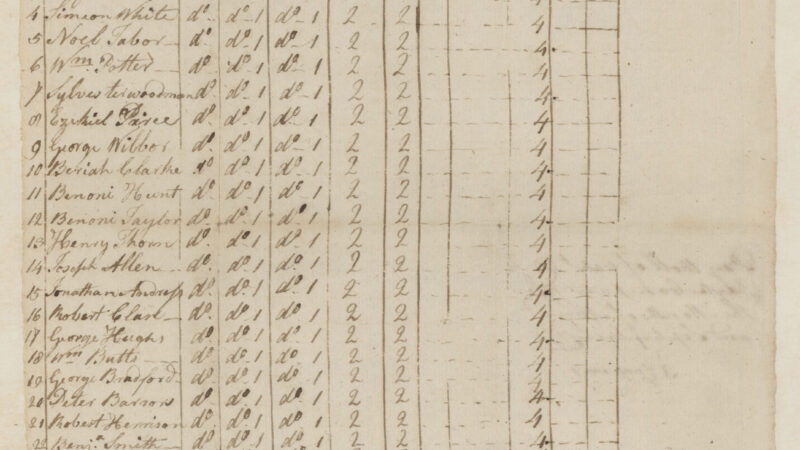 4 Simeon White d.o d.o 1 d.o 1 2 2 4
5 Noel Tabor d.o d.o 1 d.o 1 2 2 4.
6 Wm. Potter d.o d.o 1 d.o 1 2 2 4.
7 Sylvester woodman d.o d.o 1 d.o 1 2 2 4.
8 Ezekiel Pirce d.o d.o 1 d.o 1 2 2 4.
9 George Wilbor d.o d.o 1 d.o 1 2 2 4.
10 Beriah Clarke d.o d.o 1 d.o 1 2 2 4.
11 Benoni Hunt d.o d.o 1 d.o 1 2 2 4.
12 Benoni Taylor d.o d.o 1 d.o 1 2 2 4.
13 Henry Thorn d.o d.o 1 d.o 1 2 2 4.
14 Joseph Allen d.o d.o 1 d.o 1 2 2 4
15 Jonathan Andress d.o d.o 1 d.o 1 2 2 4.
16 Robert Clan d.o d.o 1 d.o 1 2 2 4.
17 George Hughs d.o d.o 1 d.o 1 2 2 4.
18 Wm Butts d.o d.o 1 d.o 1 2 2 4.
19 George Bradford d.o d.o 1 d.o 1 2 2 4
20 Peter Barrons d.o d.o 1 d.o 1 2 2 4.
21 Robert Herrison d.o d.o 1 d.o 1 2 2 4.
22 Benja. Smith d.o d.o 1 d.o 1 2 2 4.